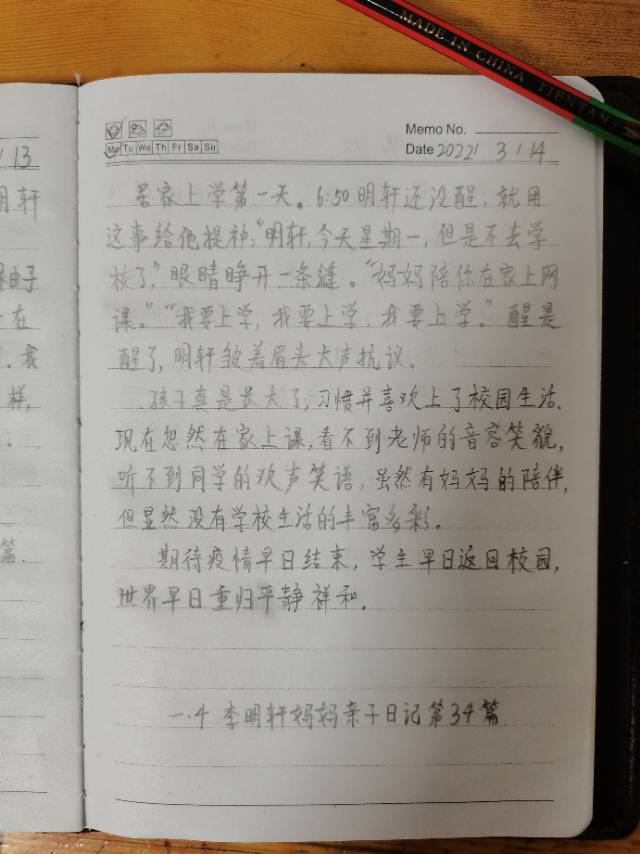 MADE IN CHINA TIENTAN
Memo No.
Mo Tu We Th Fr Sa Su
Date 2022 / 3 / 14
居家上学第一天。6:50明轩还没醒，就用
这事给他提神:“明轩,今天星期一,但是不去学
校了,”眼睛睁开一条缝。“妈妈陪你在家上网
课。”“我要上学,我要上学,我要上学。”醒是
醒了,明轩皱着眉头大声抗议。
孩子真是长大了,习惯并喜欢上了校园生活、
现在忽然在家上课,看不到老师的音容笑貌,
听不到同学的欢声笑语,虽然有妈妈的陪伴,
但显然没有学校生活的丰富多彩。
期待疫情早日结束,学生早日返回校园,
世界早日重归平静祥和。
一.4 李明轩妈妈亲子日记第34篇
/13
明轩
子
在
.我
样,
篇.